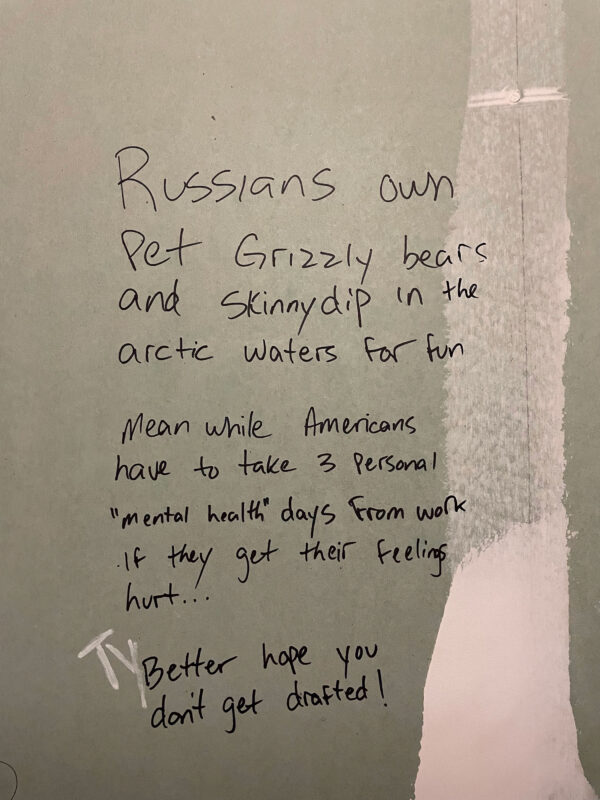 Russians own
Pet Grizzly bears
and skinnydip in the
arctic waters for fun
Mean while Americans
have to take 3 Personal
"mental health" days from work
if they get their feelings
hurt...
TY
Better hope you
don't get drafted!